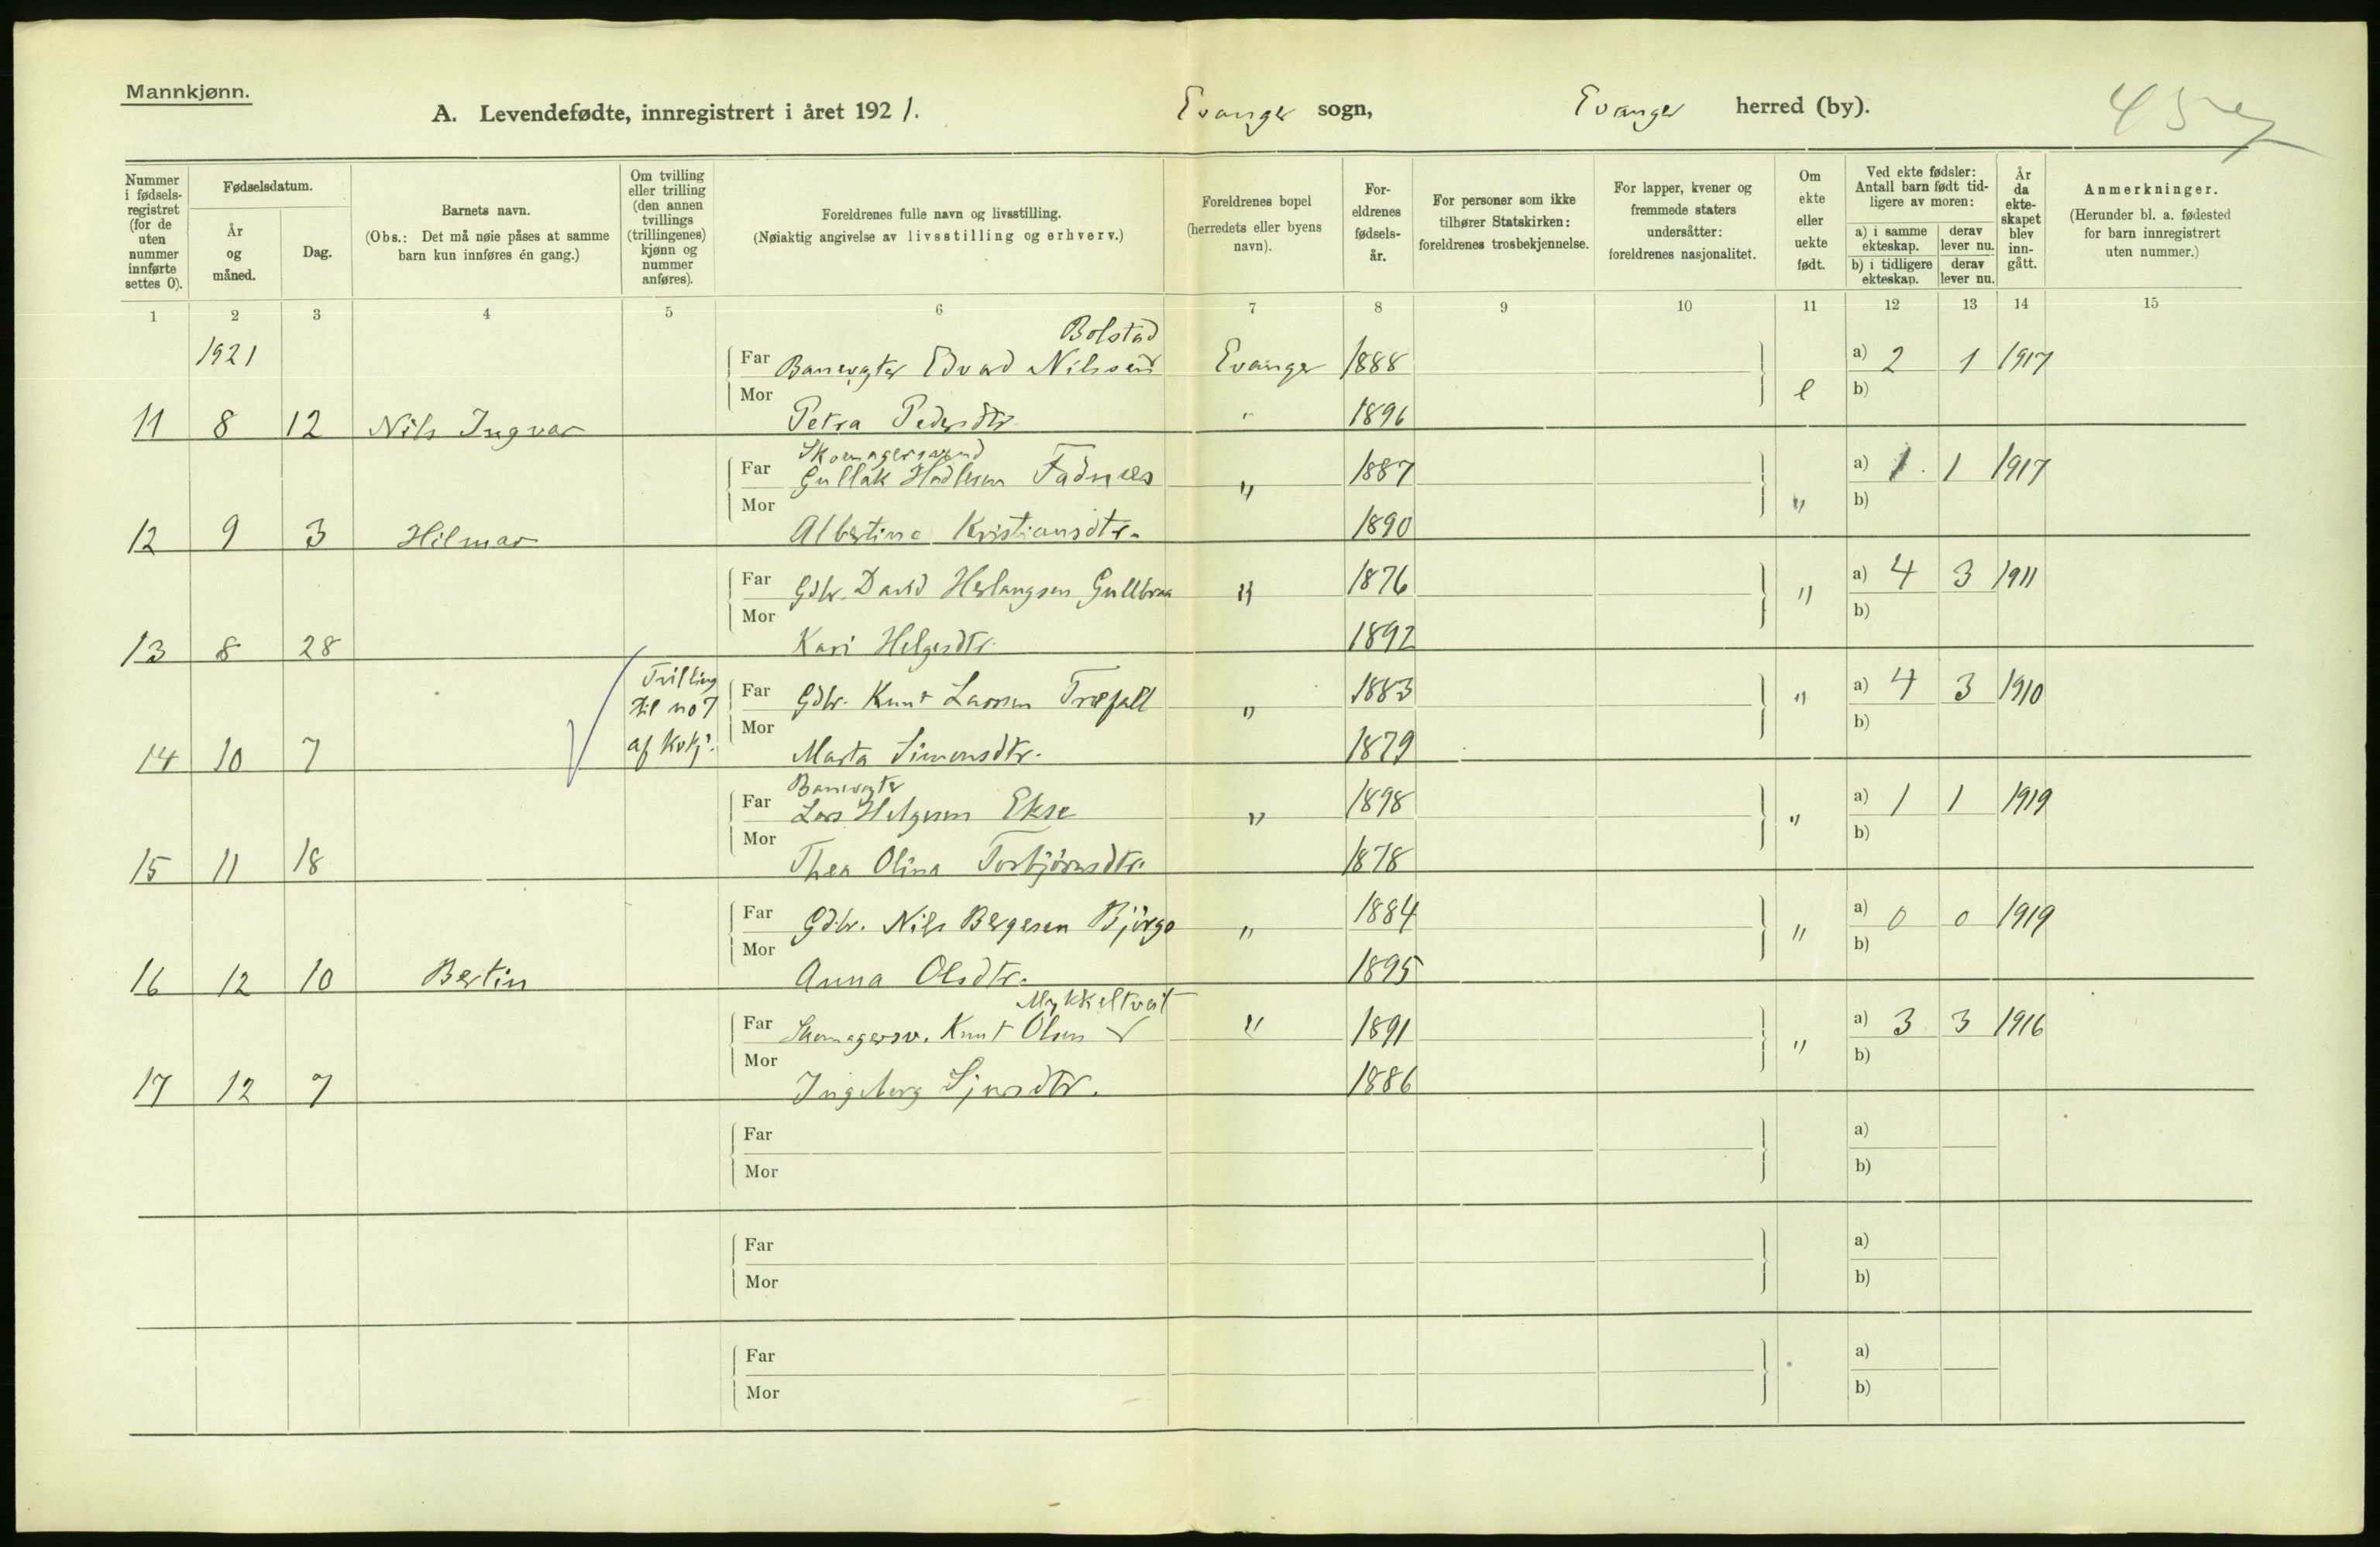 Mannkjønn.
A. Levendefødte, innregistrert i året 1921.
Evanger sogn,
Evanger herred (by).
Nummer i fødselsregistret (for de uten nummer innførte settes 0).
Fødselsdatum.
År og måned.
Dag.
Barnets navn.
(Obs.: Det må nøie påses at samme barn kun innføres én gang.)
Om tvilling eller trilling (den annen tvillings (trillingenes) kjønn og nummer anføres).
Foreldrenes fulle navn og livsstilling.
(Nøiaktig angivelse av livsstilling og erhverv.)
Foreldrenes bopel (herredets eller byens navn).
Foreldrenes fødselsår.
For personer som ikke tilhører Statskirken: foreldrenes trosbekjennelse.
For lapper, kvener og fremmede staters undersåtter: foreldrenes nasjonalitet.
Om ekte eller uekte født.
Ved ekte fødsler: Antall barn født tidligere av moren:
a) i samme ekteskap. derav lever nu.
b) i tidligere ekteskap. derav lever nu.
År da ekteskapet blev inngått.
Anmerkninger.
(Herunder bl. a. fødested for barn innregistrert uten nummer.)
1 2 3 4 5 6 7 8 9 10 11 12 13 14 15
1921
Bolstad
Far Banevogter Edvard Nilssen Evanger 1888 a) 2 1 1917
11 8 12 Nils Ingvar Mor Petra Pedersdtr " 1896 e b)
Skomagersvend
Far Gullak Hadlesen Fadnes " 1887 a) 1. 1 1917
12 9 3 Hilmar Mor Albertine Kristiansdtr. 1890 " b)
Far Gdbr. David Herlaugsen Gullbraa " 1876 a) 4 3 1911
13 8 28 Mor Kari Helgesdtr. 1892 " b)
Tvilling til no 7 af Kvkj.
Far Gdbr. Knut Larsen Træfall " 1883 a) 4 3 1910
14 10 7 Mor Marta Simonsdtr. 1879 " b)
Banevogter
Far Lars Helgesen Ekse " 1898 a) 1 1 1919
15 11 18 Mor Thea Olina Torbjörnsdtr. 1878 " b)
Far Gdbr. Nils Bergesen Björgo " 1884 a) 0 0 1919
16 12 10 Bertin Mor Anna Olsdtr. 1895 " b)
Mykkeltveit
Far Skomagersv. Knut Olsen " 1891 a) 3 3 1916
17 12 7 Mor Ingeborg Sjursdtr. 1886 " b)
Far a)
Mor b)
Far a)
Mor b)
Far a)
Mor b)